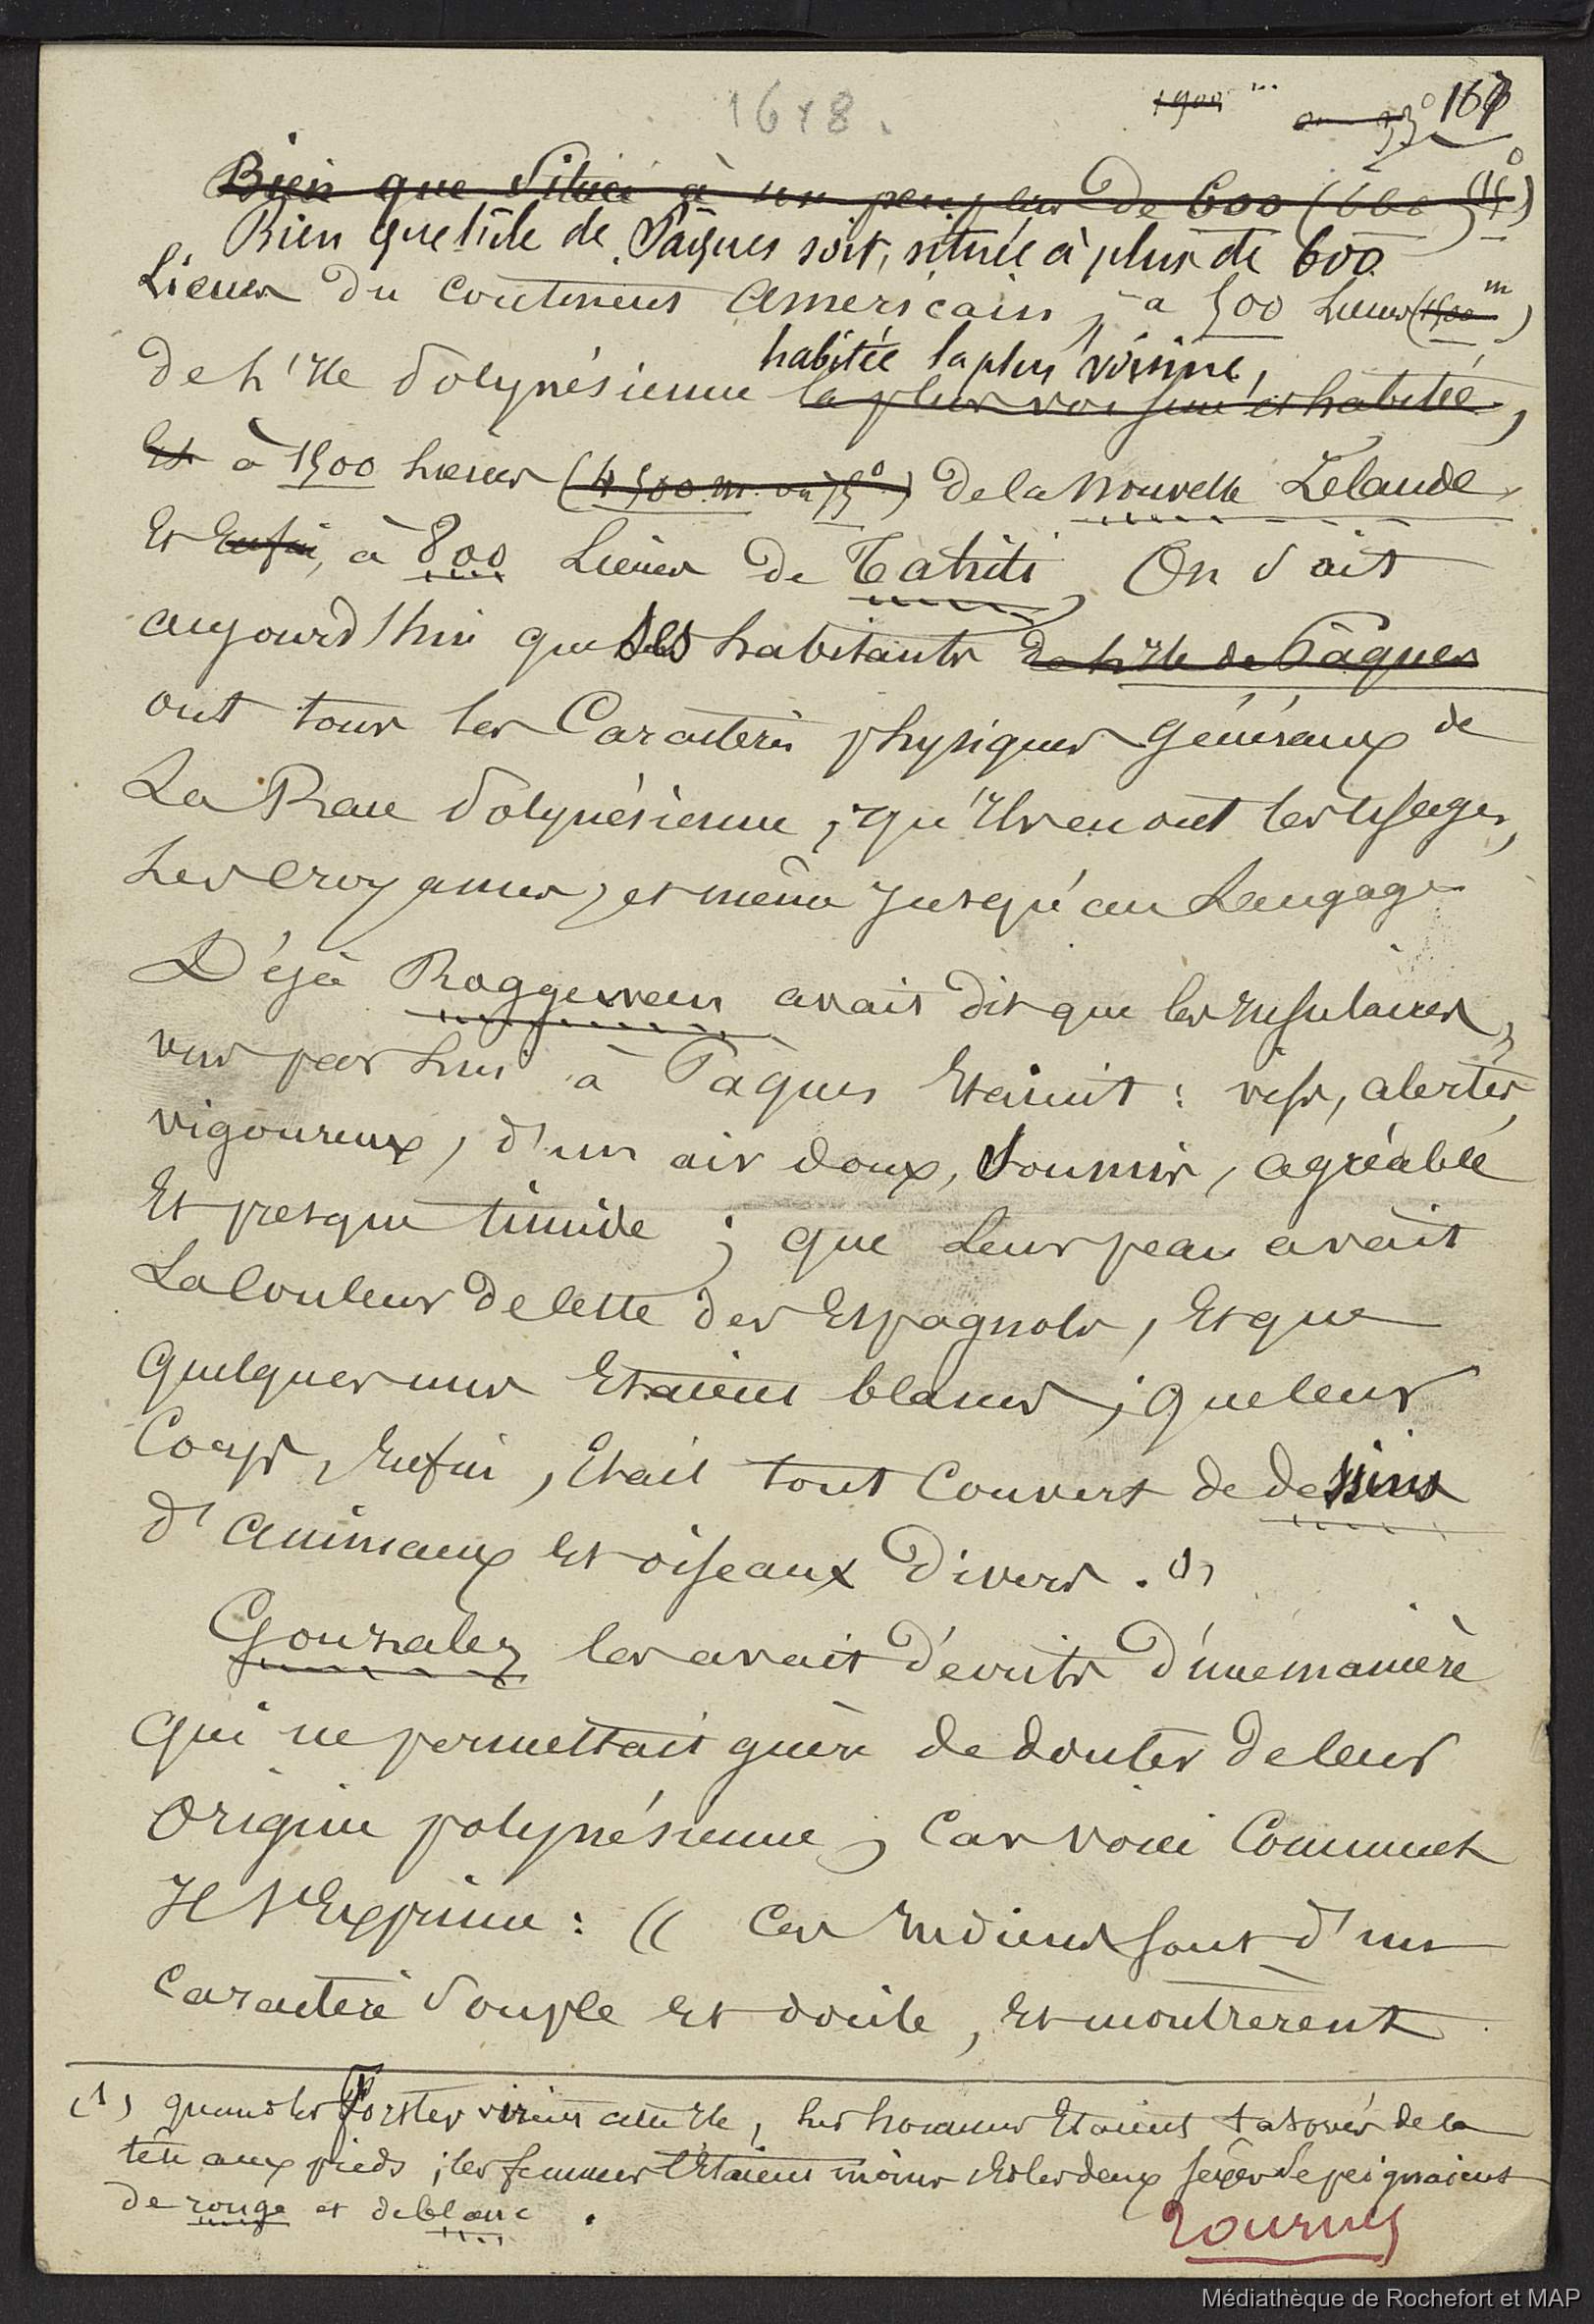 1678.
1900 m ou 33° 167
Bien que située à un peu plus de 600 (600
Bien que l'île de Pâques soit, située à plus de 600
Lieues du continent américain, à 500 lieues (1500 m)
de l'Ile Polynésienne la plus voisine et habitée,
habitée la plus voisine,
Et à 1500 lieues (4500 m. ou 75°) de la Nouvelle Zélande,
Et Enfin, à 800 Lieues de Tahiti, On sait
aujourd'hui que ses habitants de l'Ile de Pâques
ont tous les Caractères physiques généraux de
La Race Polynésienne, qu'Ils en ont les Usages,
Les Croyances, et même jusqu'au Langage
Déjà Roggeween avait dit que les Insulaires,
vus par lui à Pâques Etaient : vifs, alertes,
vigoureux, d'un air doux, soumis, agréable
Et presque timide ; que Leur peau avait
La Couleur de celle des Espagnols, Et que
quelques uns Etaient blancs ; que leur
Corps, Enfin, Etait tout Couvert de dessins
d'animaux Et oiseaux Divers . (1)
Gonzalez les avait décrits d'une manière
qui ne permettait guère de douter de leur
Origine polynésienne, Car voici Comment
Il s'Exprime : (( Ces Indiens sont d'un
Caractère souple Et docile, Et montrèrent
(1) quand les Forster virent cette Ile, les hommes Etaient tatoués de la
tête aux pieds ; les femmes l'Etaient moins Et les deux sexes se peignaient
de rouge et de blanc .
Tournez
Médiathèque de Rochefort et MAP